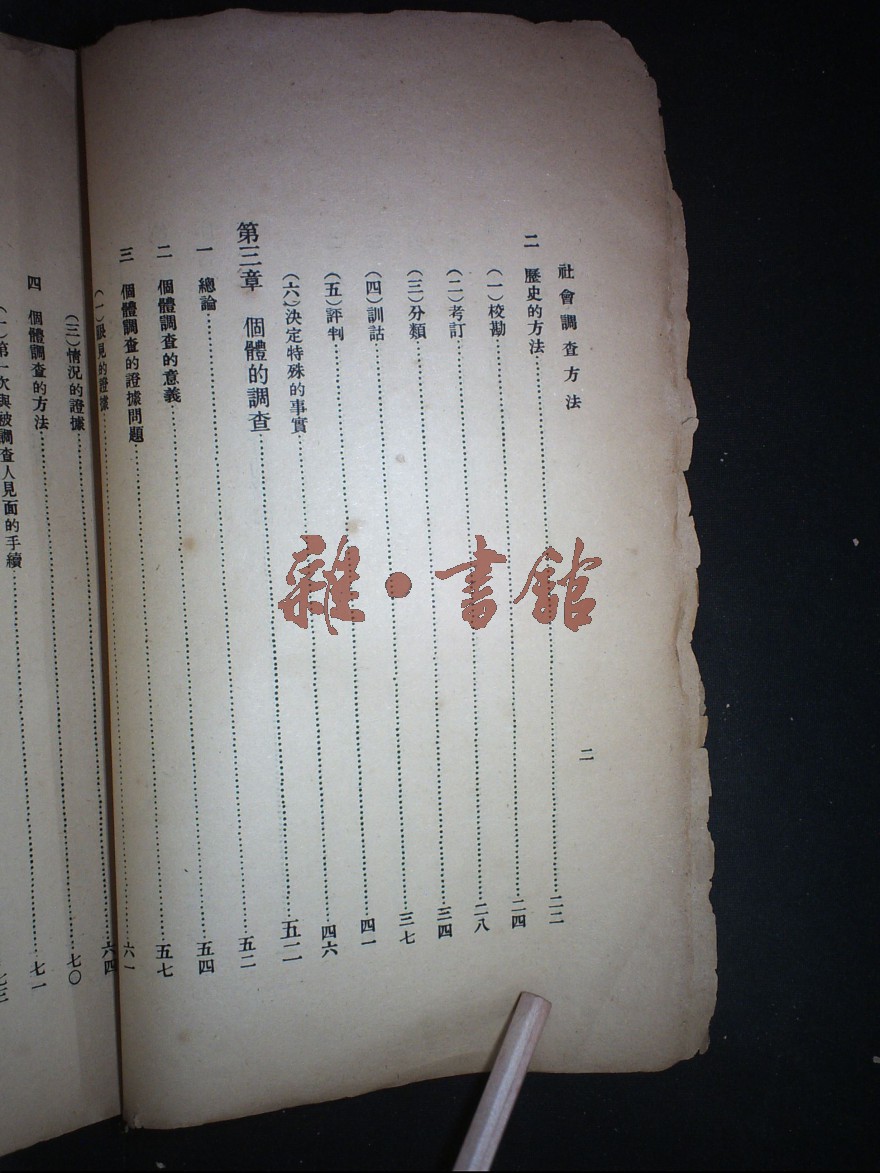 社會調查方法 二
二 歷史的方法 二二
(一)校勘 二四
(二)考訂 二八
(三)分類 三四
(四)訓詁 三七
(五)評判 四一
(六)決定特殊的事實 四六
第三章 個體的調查 五二
一 總論 五二
二 個體調查的意義 五四
三 個體調查的證據問題 五七
(一)眼見的證據 六一
六四
(三)情況的證據 七〇
四 個體調查的方法 七一
(一)第一次與被調查人見面的手續 七三
雜·書館